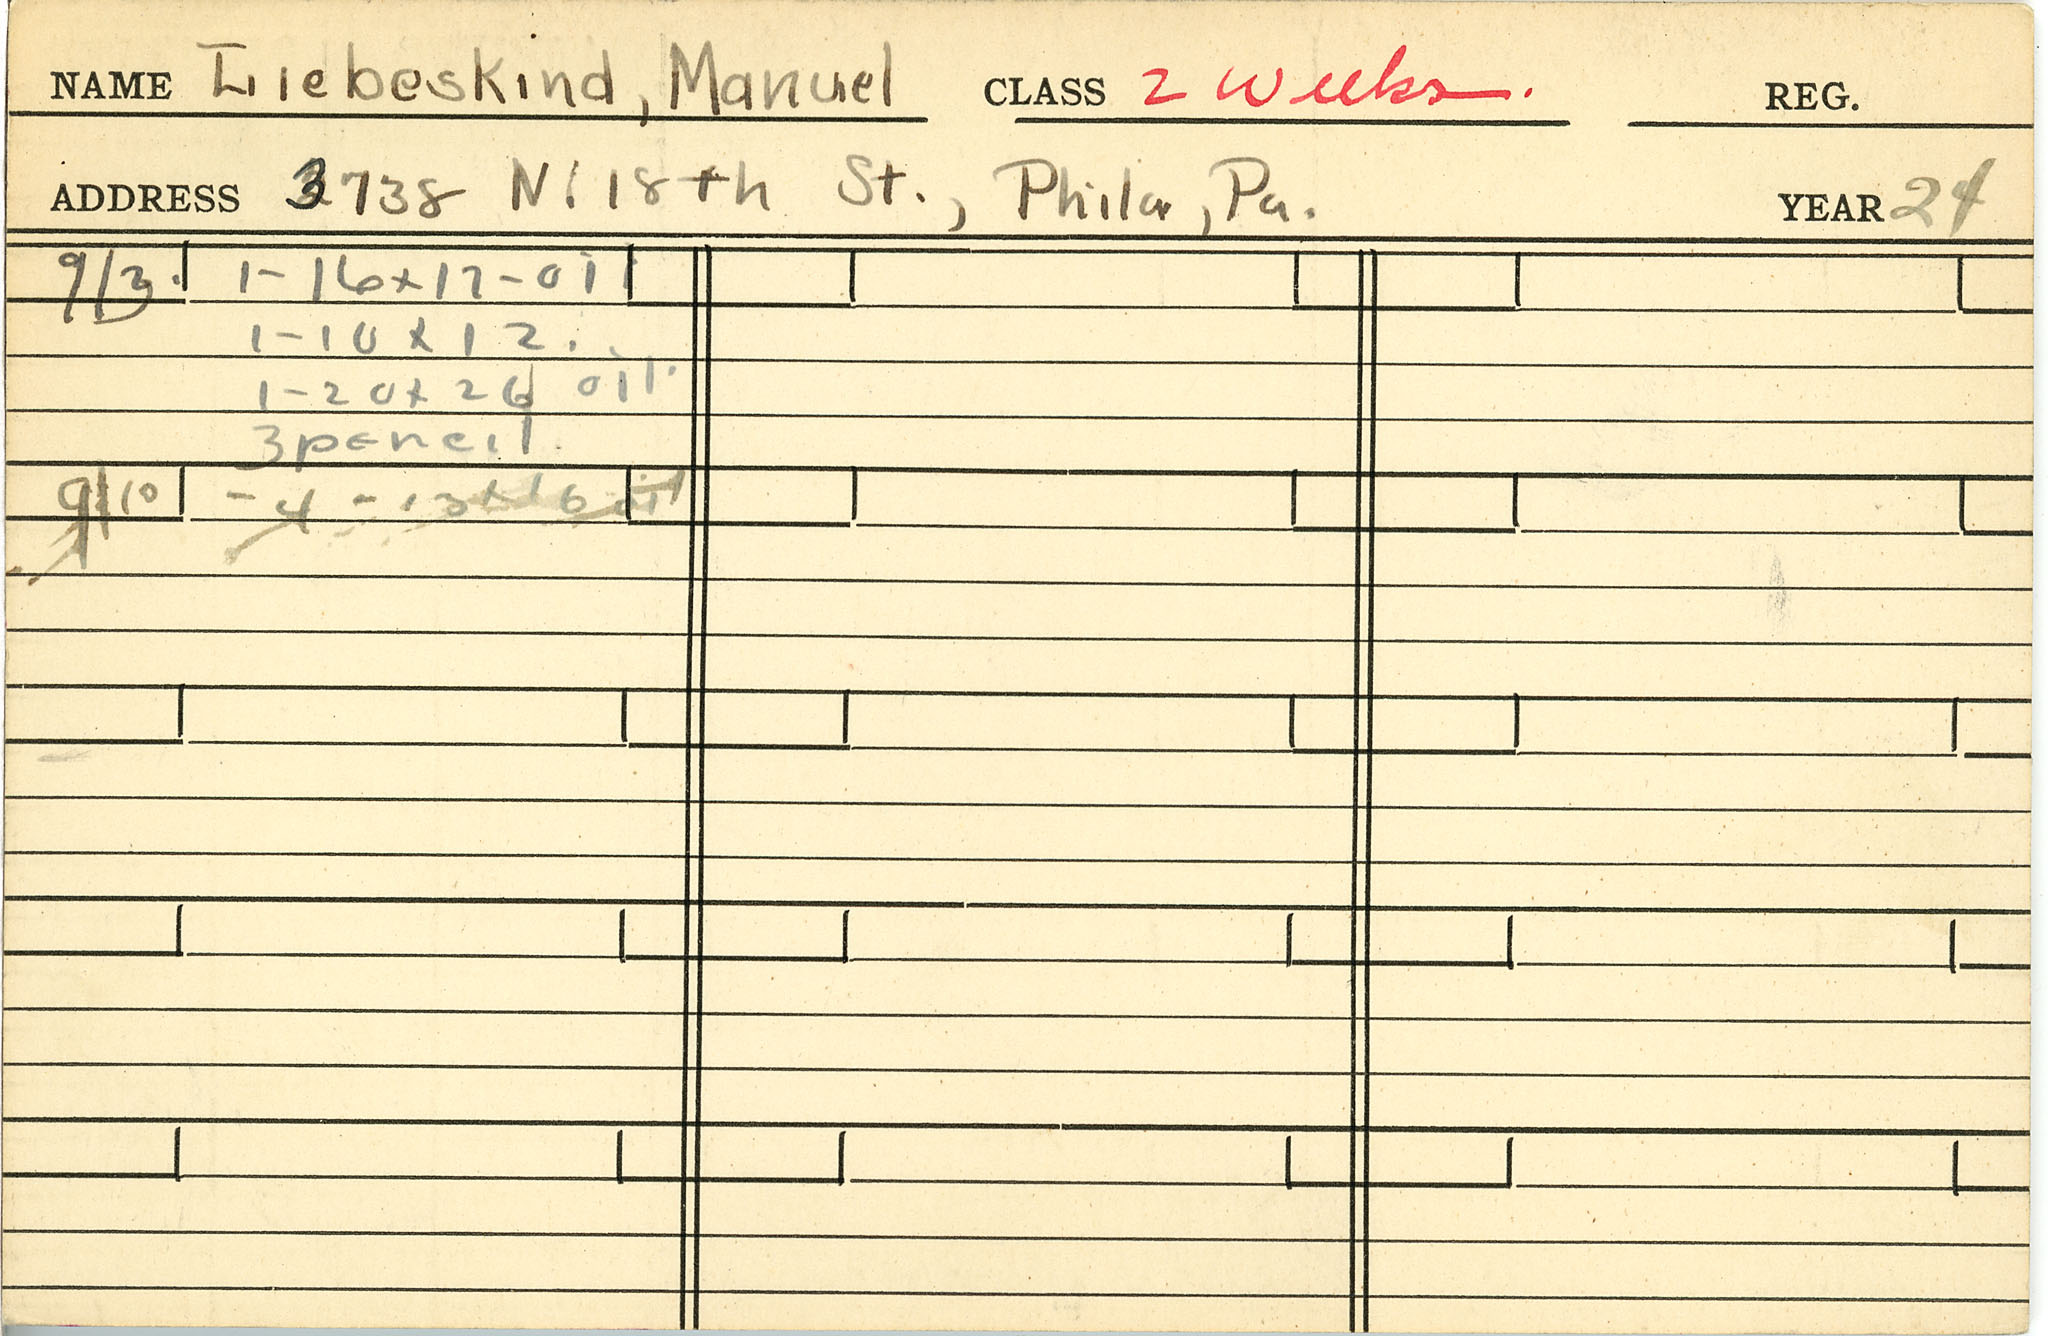 NAME Liebeskind, Manuel CLASS 2 Weeks. REG.
ADDRESS 3738 N. 18th St., Phila, Pa. YEAR 24
9/3. 1-16x17-oil
1-10x12.
1-20x26 oil.
3 pencil.
9/10 - 4 - 13x16 oil